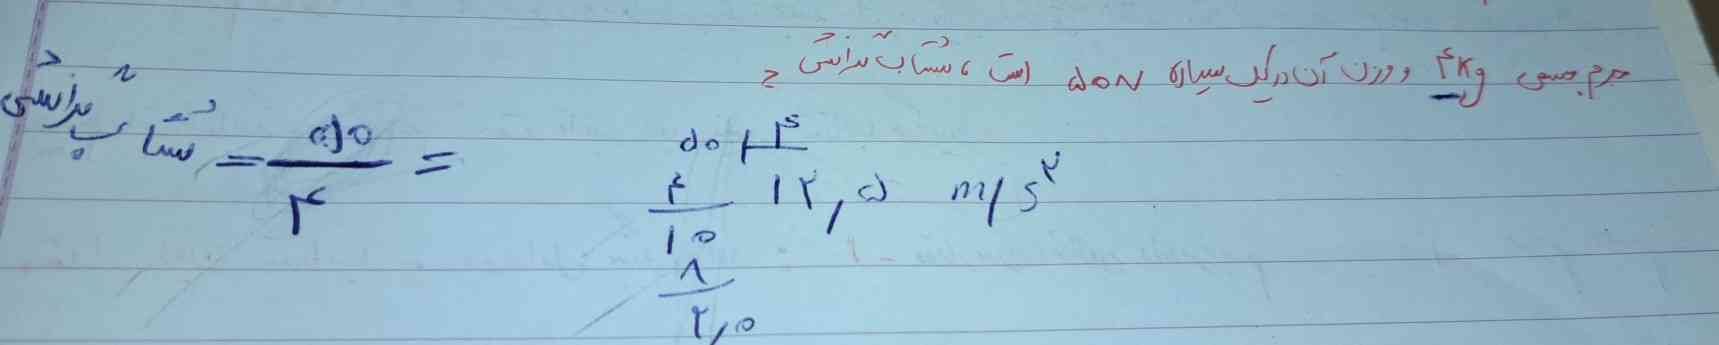 جرم جسمی ۴kg و وزن آن در یک سیاره ۵۰N است، شتاب گرانشی ؟
شتاب گرانشی = ۵۰/۴ =
۵۰ | ۴
۴ ۱۲,۵ m/s²
۱۰
۸
۲,۰